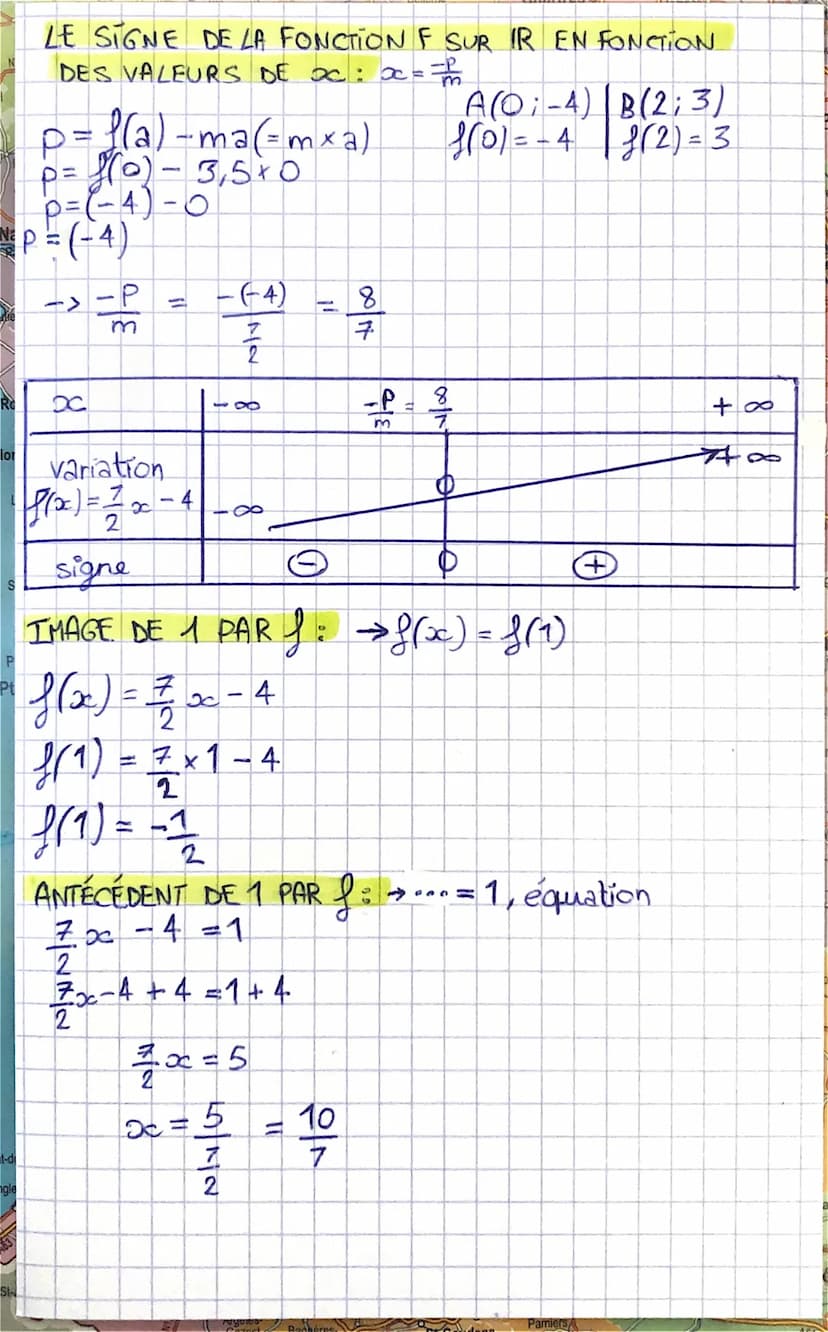 LE SIGNE DE LA FONCTION F SUR IR EN FONCTION
DES VALEURS DE x : x = -p/m
A(0 ; -4) | B(2 ; 3)
p = f(a) - ma (= m × a)
f(0) = -4 | f(2) = 3
p = f(0) - 3,5 × 0
p = (-4) - 0
p = (-4)
-> -P/m = -(-4)/(7/2) = 8/7
x -∞ -P/m = 8/7 + ∞
variation + ∞
f(x) = 7/2 x - 4 -∞ 0
signe - 0 +
IMAGE DE 1 PAR f : → f(x) = f(1)
f(x) = 7/2 x - 4
f(1) = 7/2 × 1 - 4
f(1) = -1/2
ANTÉCÉDENT DE 1 PAR f : → ... = 1, équation
7/2 x - 4 = 1
7/2 x - 4 + 4 = 1 + 4
7/2 x = 5
x = 5/(7/2) = 10/7
Pamiers